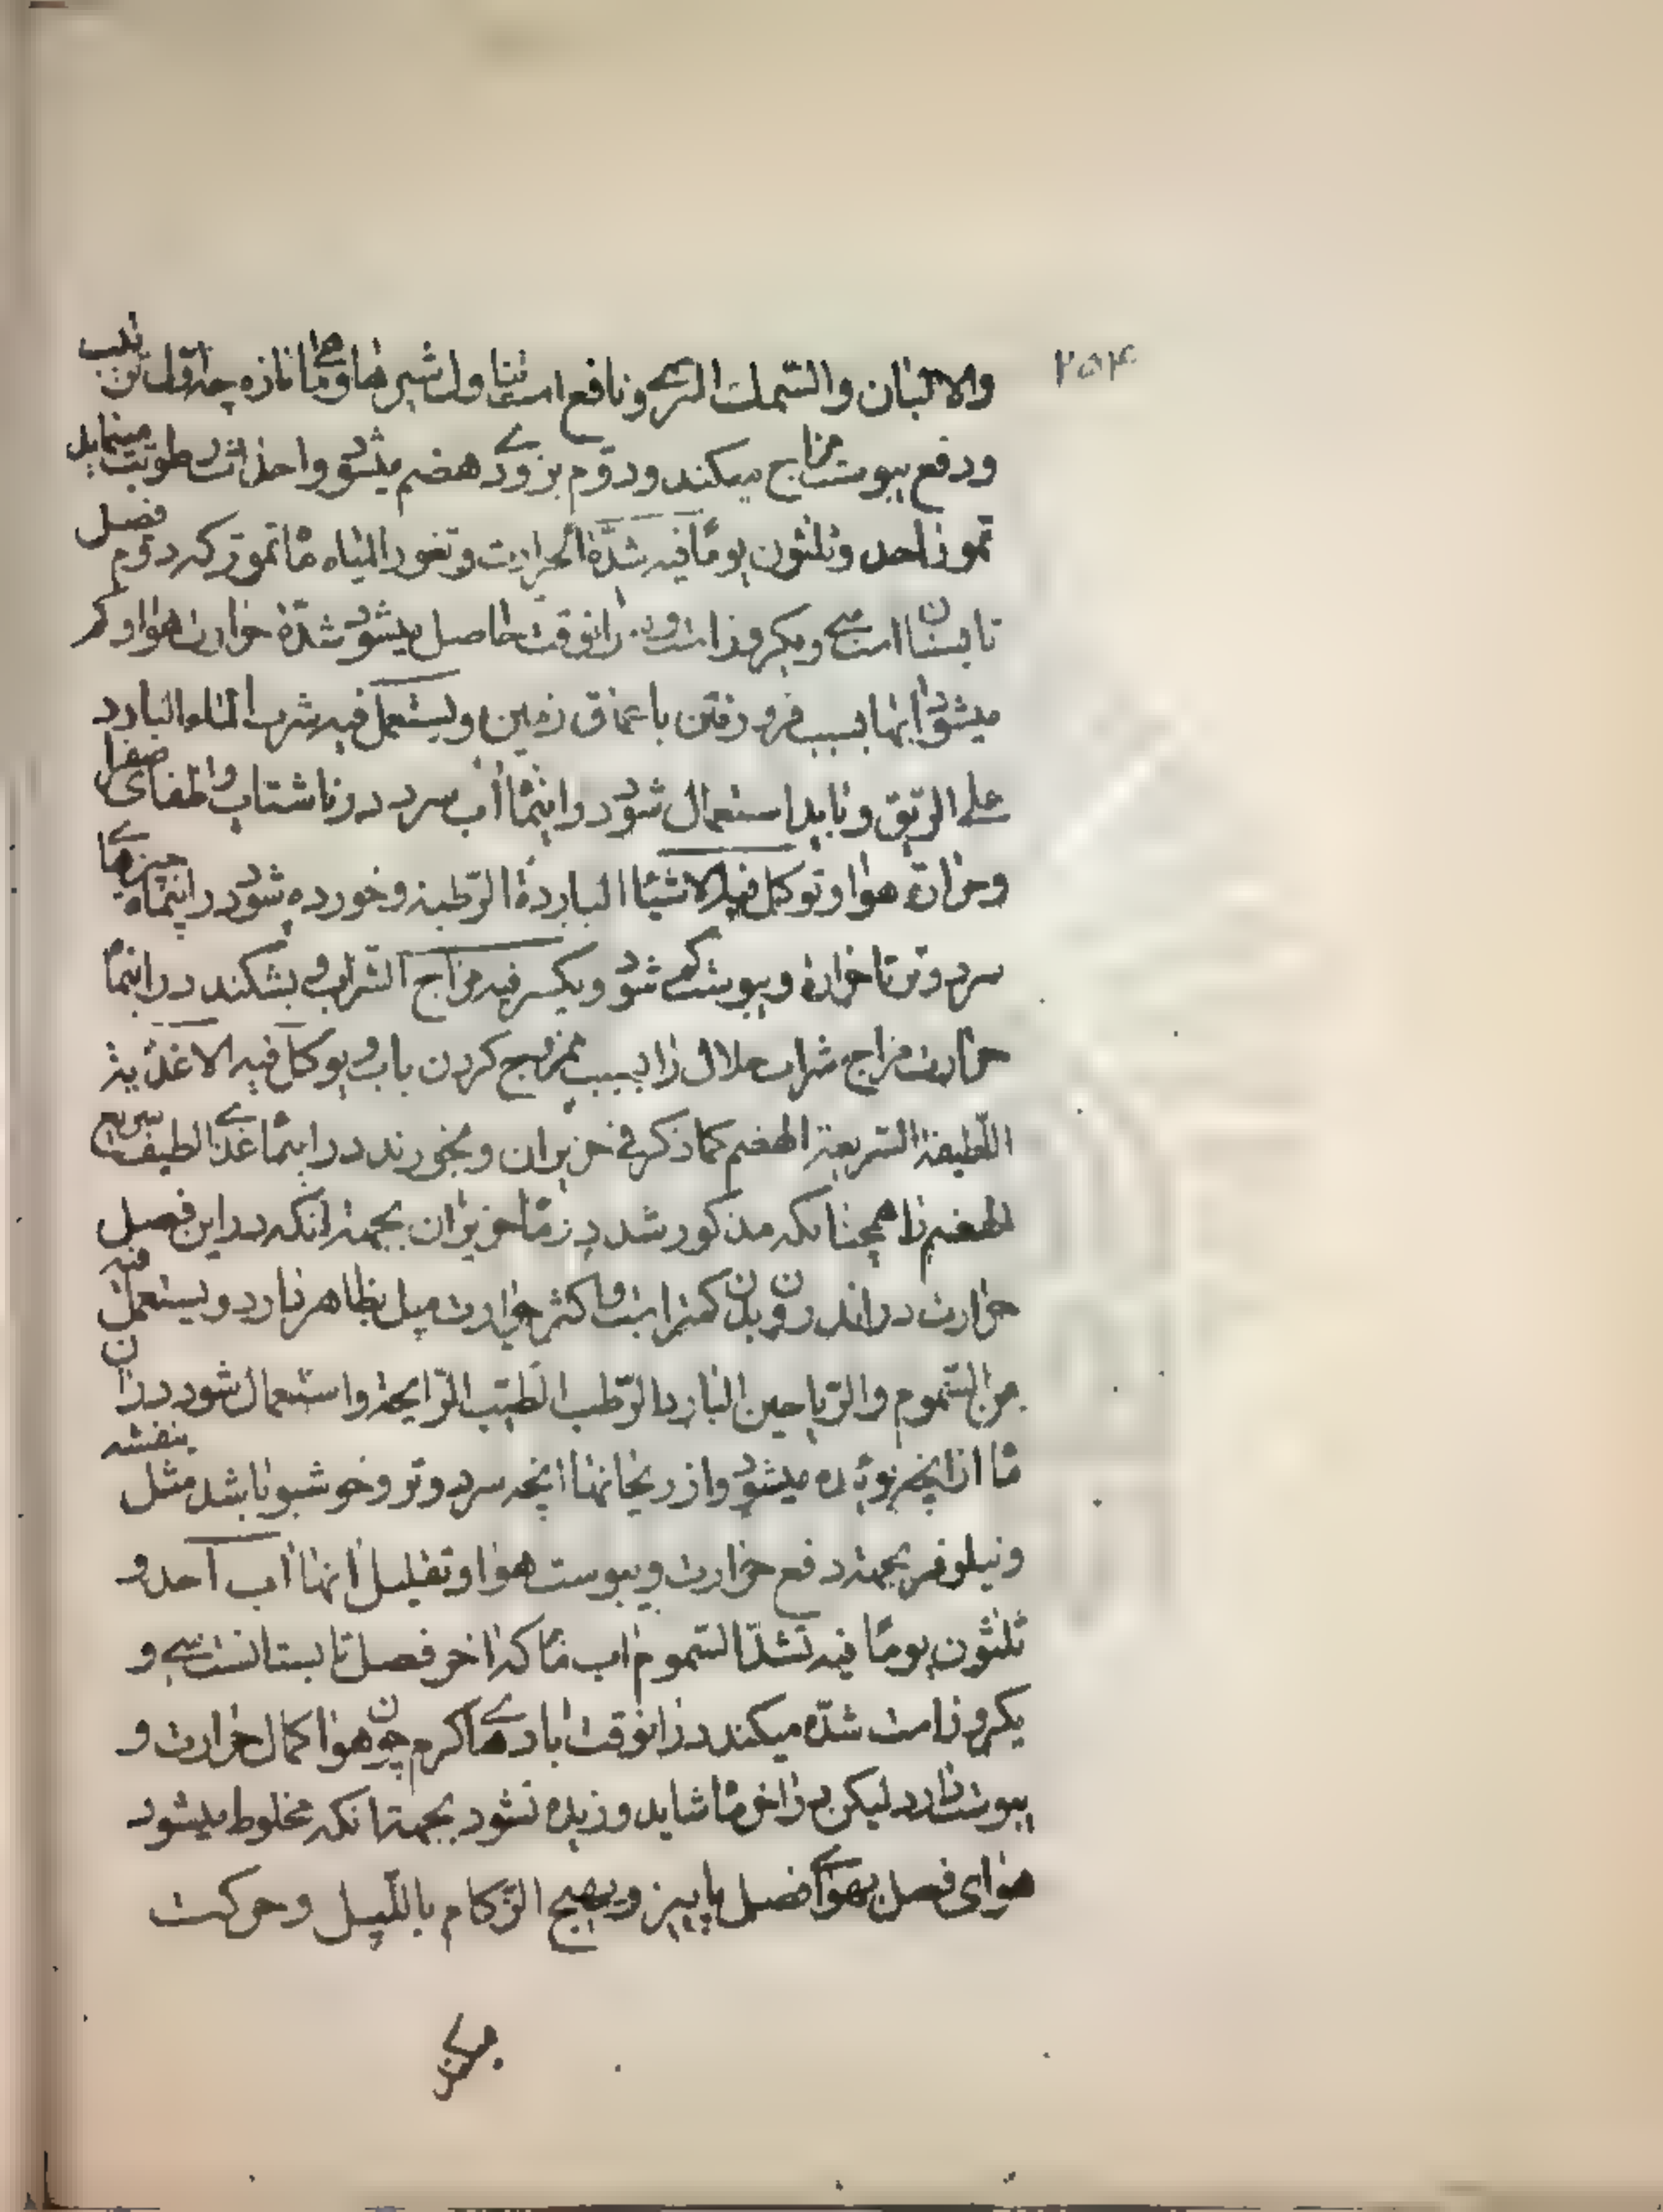 ۲۵۴
والالبان والسّمك الطری و نافع است تناول شیرها و ماهی تازه چه اوّل ترتیب
و دفع یبوست مزاج میکند و دوّم بزودی هضم میشود و احداث رطوبت مینماید
تموز احد و ثلثون یومًا فیه شدّة الحرارت و تغور المیاه ماه تموز که دوّم فصل
تابستان است سی و یکروز است و در انوقت حاصل میشود شدّة حرارت هوا و کم
میشود ابها بسبب فرو رفتن باعماق زمین و یستعمل فیه شرب الماء البارد
علی الریق و باید استعمال شود در اینماه اب سرد در ناشتاب و اطفای صفرا
و حرارة هوا و توکل فیه الاشیاء الباردة الرّطبة و خورده شود در اینماه چیزهای
سرد و تر تا حرارة و یبوست کم شود و یکسر فیه مزاج الشراب و بشکند در اینماه
حرارت مزاج شراب حلال را بسبب ممزوج کردن باب و یوکل فیه الاغذیة
اللّطیفة السّریعة الهضم کما ذکر فی حزیران و بخورند در اینماه غذای لطیف سریع
الهضم را همچنانکه مذکور شد در ماه حزیران بجهة انکه در این فصل
حرارت در اندرون بدن کمتر است و اکثر حرارت میل بظاهر دارد و یستعمل فیه
من الشّموم و الرّیاحین البارد الرّطب الطّیّب الرّایحة و استعمال شود در ان
ماه از انچه بوئیده میشود و از ریحانها انچه سرد و تر و خوشبو باشد مثل بنفشه
و نیلوفر بجهة دفع حرارت و یبوست هوا و تقلیل انها اب احد و
ثلثون یومًا فیه تشدّ السّموم اب ماه که اخر فصل تابستانست سی و
یکروز است شدّه میکند در انوقت بادهای گرم چون هوا کمال حرارت و
یبوست دارد لیکن در اخر ماه شاید و زیده نشود بجهة انکه مخلوط میشود
هوای فصل بهوای فصل پاییز و یهیج الزّکام باللّیل و حرکت